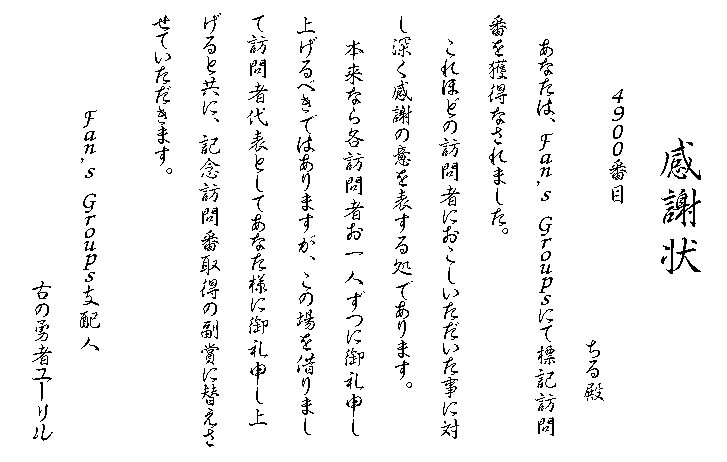 感謝状
4900番目
ちる殿
あなたは、Fan's Groupsにて標記訪問
番を獲得なされました。
これほどの訪問者におこしいただいた事に対
し深く感謝の意を表する処であります。
本来なら各訪問者お一人ずつに御礼申し
上げるべきではありますが、この場を借りまし
て訪問者代表としてあなた様に御礼申し上
げると共に、記念訪問番取得の副賞に替えさ
せていただきます。
Fan's Groups支配人
古の勇者ユーリル